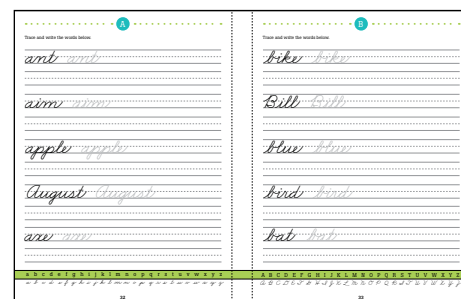 A
Trace and write the words below.
ant ant
aim aim
apple apple
August August
axe axe
a b c d e f g h i j k l m n o p q r s t u v w x y z
a b c d e f g h i j k l m n o p q r s t u v w x y z
32
B
Trace and write the words below.
bike bike
Bill Bill
blue blue
bird bird
bat bat
A B C D E F G H I J K L M N O P Q R S T U V W X Y Z
A B C D E F G H I J K L M N O P Q R S T U V W X Y Z
33